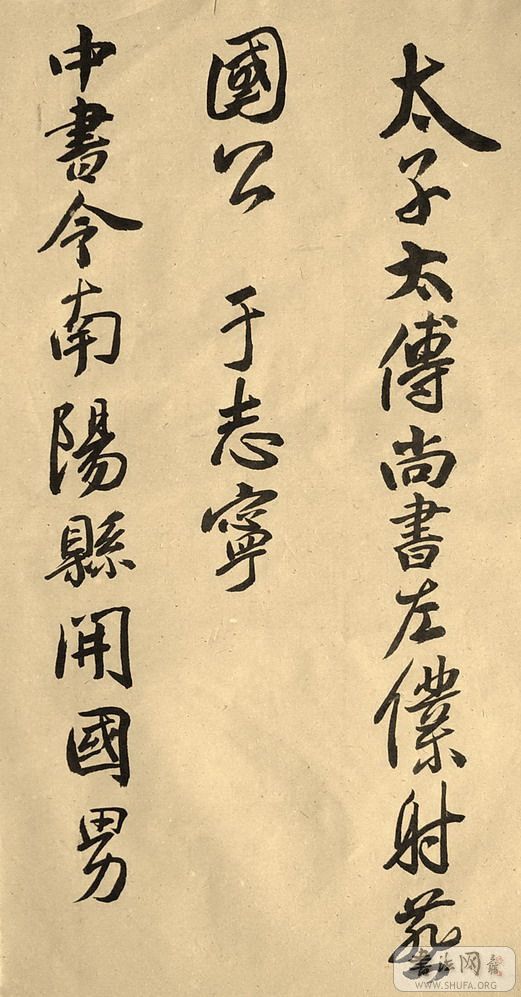 太子太傅尚書左僕射燕
國公 于志寧
中書令南陽縣開國男
書法网
WWW.SHUFA.ORG